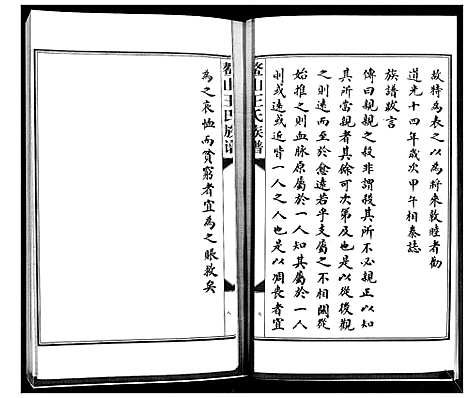 故特為表之以為將來敦睦者勸
道光十四年歲次甲午相泰誌
族譜跋言
傳曰親親之殺非謂殺其所不必親正以知
其所當親者其餘可次第及也是以從後觀
之則遠而至於愈遠若乎支屬之不相關從
始推之則血脉原屬於一人知其屬於一人
則或遠或近皆一人之人也是以凋喪者宜
鳌山王氏族譜
八
鳌山王氏族譜
八
為之哀恤而貧窮者宜為之賑救矣